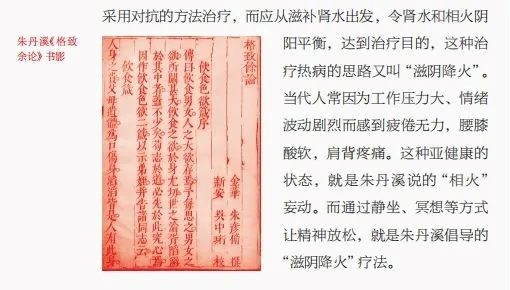 采用对抗的方法治疗，而应从滋补肾水出发，令肾水和相火阴
阳平衡，达到治疗目的，这种治
疗热病的思路又叫“滋阴降火”。
当代人常因为工作压力大、情绪
波动剧烈而感到疲倦无力，腰膝
酸软，肩背疼痛。这种亚健康的
状态，就是朱丹溪说的“相火”
妄动。而通过静坐、冥想等方式
让精神放松，就是朱丹溪倡导的
“滋阴降火”疗法。
朱丹溪《格致
余论》书影
格致餘論
金華 朱彥脩 撰
新安 吳中珩 校
飲食色欲箴序
傳曰飲食男女人之大欲存焉予每思之男女之
欲所關甚大飲食之欲於身尤切世之淪胥陷溺
於其中者蓋不少矣苟志於道必先於此究心焉
因作飲食色欲二箴以示弟姪并告諸同志云
飲食箴
人身之貴父母遺體為口傷身滔滔皆是人有此身